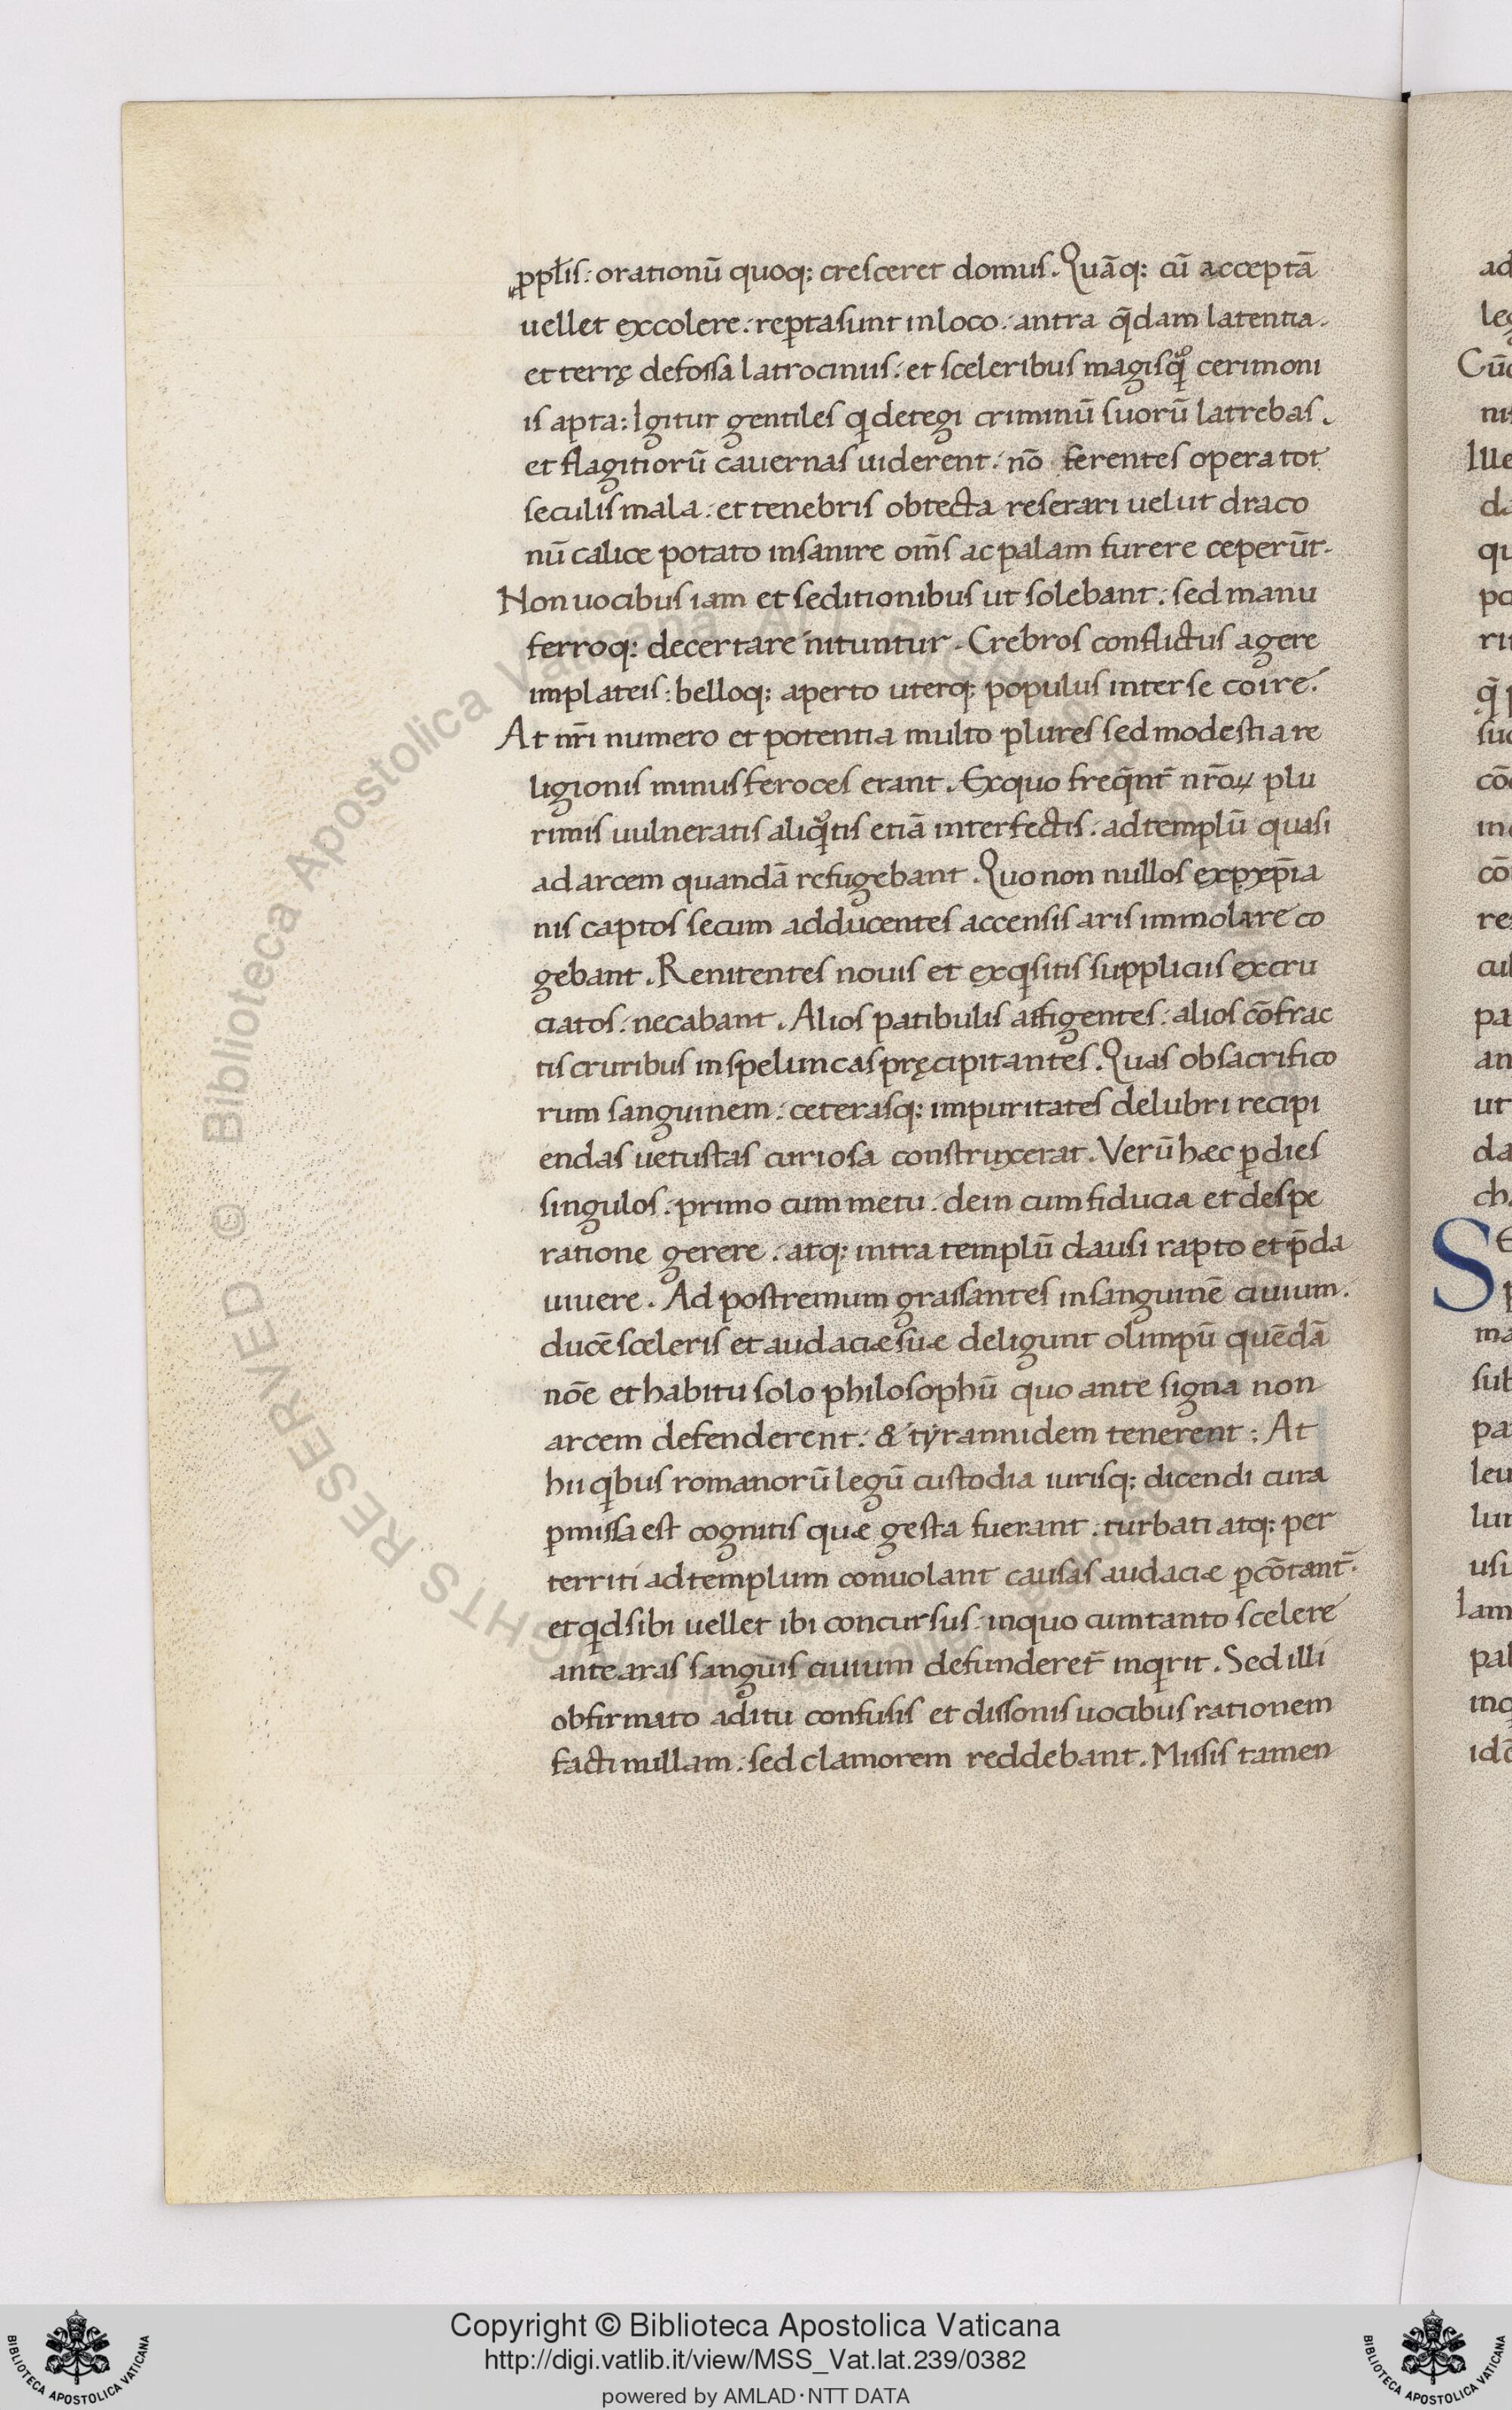 ppl̄is: orationū quoq; cresceret domus. Quāq; cū acceptā
uellet excolere: repta sunt in loco: antra q̄dam latentia.
et terrę defossa latrociniis: et sceleribus magis qͥ̊ cerimoni
is apta: Igitur gentiles qͥ detegi criminū suorū latrebas.
et flagitiorū cauernas uiderent: nō ferentes opera tot
seculis mala: et tenebris obtecta reserari uelut draco
nū calice potato insanire om̄s ac palam furere ceperūt.
Non uocibus iam et seditionibus ut solebant: sed manu
ferroq; decertare nituntur. Crebros conflictus agere
in plateis: belloq; aperto uterq; populus inter se coire.
At nr̄i numero et potentia multo plures sed modestia re
ligionis minus feroces erant. Ex quo freq̄nt̄ nr̄oꝝ plu
rimis uulneratis aliqͦtis etiā interfectis: ad templū quasi
ad arcem quandā refugebant. Quo non nullos ex pxp̄ia
nis captos secum adducentes accensis aris immolare co
gebant. Renitentes nouis et exqͥsitis suppliciis excru
ciatos: necabant. Alios patibulis affigentes: alios cōfrac
tis cruribus in speluncas pręcipitantes. Quas ob sacrifico
rum sanguinem: ceterasq; impuritates delubri recipi
endas uetustas curiosa construxerat. Verū hæc ꝑ dies
singulos: primo cum metu: dein cum fiducia et despe
ratione gerere: atq; intra templū clausi rapto et p̄da
uiuere. Ad postremum grassantes in sanguinē ciuium.
ducē sceleris et audaciæ suæ deligunt olimpū quēdā
nōe et habitu solo philosophū quo ante signa non
arcem defenderent: & tyrannidem tenerent: At
hii qͥbus romanorū legū custodia iurisq; dicendi cura
ꝑmissa est cognitis quæ gesta fuerant: turbati atq; per
territi ad templum conuolant causas audaciæ ꝑcōtant̄.
et qͥd sibi uellet ibi concursus: in quo cum tanto scelere
ante aras sanguis ciuium defunderet̄ inqͥrit. Sed illi
obfirmato aditu confusis et dissonis uocibus rationem
facti nullam: sed clamorem reddebant. Missis tamen
Copyright © Biblioteca Apostolica Vaticana
http://digi.vatlib.it/view/MSS_Vat.lat.239/0382
powered by AMLAD·NTT DATA